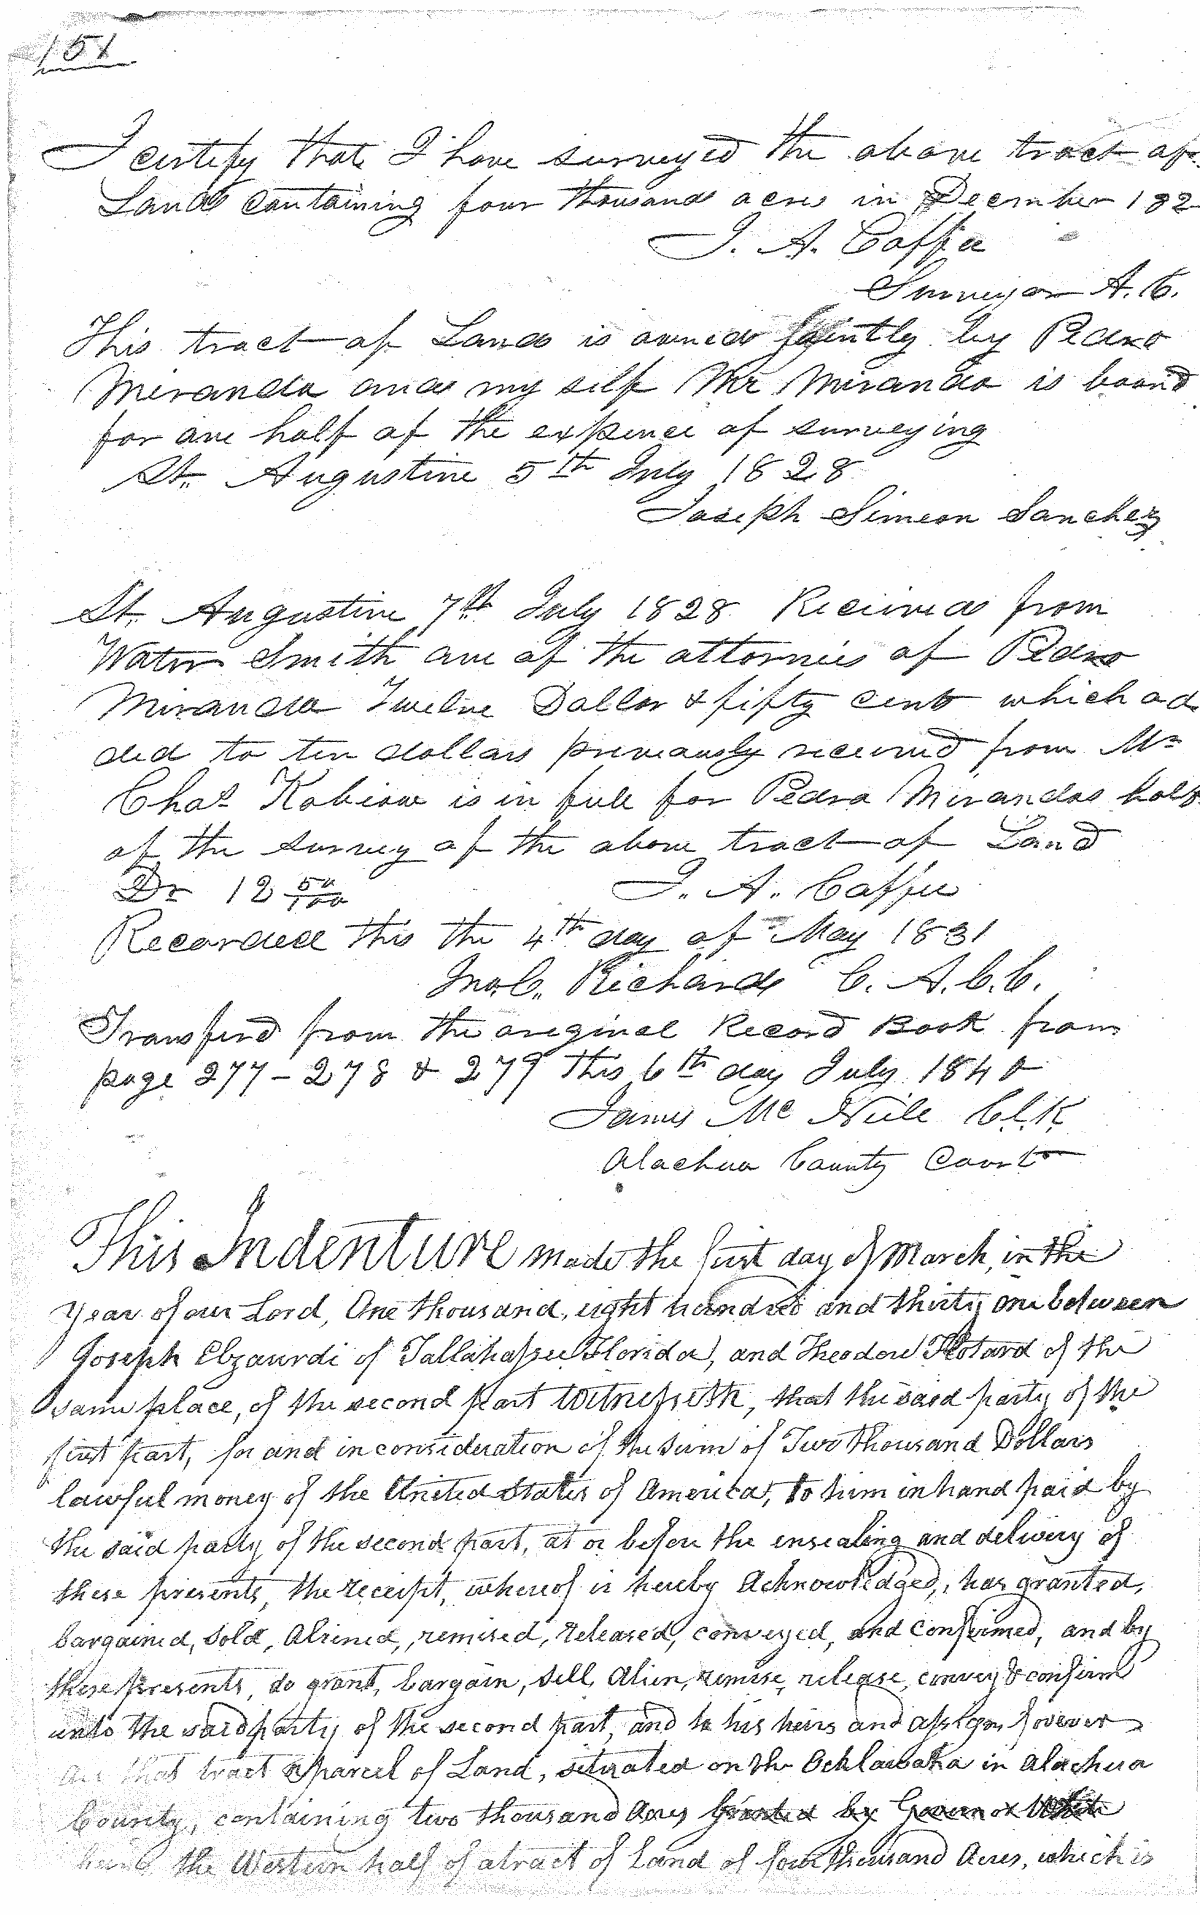 151
I certify that I have surveyed the above tract of
Land containing four thousand acres in December 182
J. A. Coffee
Surveyor A. C.
This tract of Land is owned jointly by Pedro
Miranda and my self Mr Miranda is bound
for one half of the expence of surveying
St. Augustine 5th July 1828
Joseph Simeon Sanchez
St. Augustine 7th July 1828 Received from
Water Smith one of the attornies of Pedro
Miranda Twelve Dollar & fifty cents which ad
ded to ten dollars previously received from Mr
Chas is in full for Pedro Mirandas half
of the survey of the above tract of Land
Dr 12 50/100 J. A. Coffee
Recorded this the 4th day of May 1831
Jno. C. Richards C. A. C. C.
Transferd from the original Record Book from
page 277 - 278 & 279 this 6th day July 1840
James Mc Neile Clk
Alachua County Court
This Indenture made the first day of March, in the
Year of our Lord, One thousand, eight hundred and thirty one between
Joseph Elzaurdi of Tallahassee Florida, and Theodore Flotard of the
same place, of the second part Witnesseth, that the said party of the
first part, for and in consideration of the sum of Two thousand Dollars
lawful money of the United States of America, to him in hand paid by
the said party of the second part, at or before the ensealing and delivery of
these presents, the receipt, whereof is hereby Acknowledged, has granted,
bargained, sold, Aliened, remised, released, conveyed, and confirmed, and by
these presents, do grant, bargain, sell, Alien, remise, release, convey & confirm
unto the said party of the second part, and to his heirs and assigns forever
All that tract or parcel of Land, situated on the Ocklawaha in Alachua
County, containing two thousand Acres granted by Governor White
the Western half of a tract of Land of four thousand Acres, which is